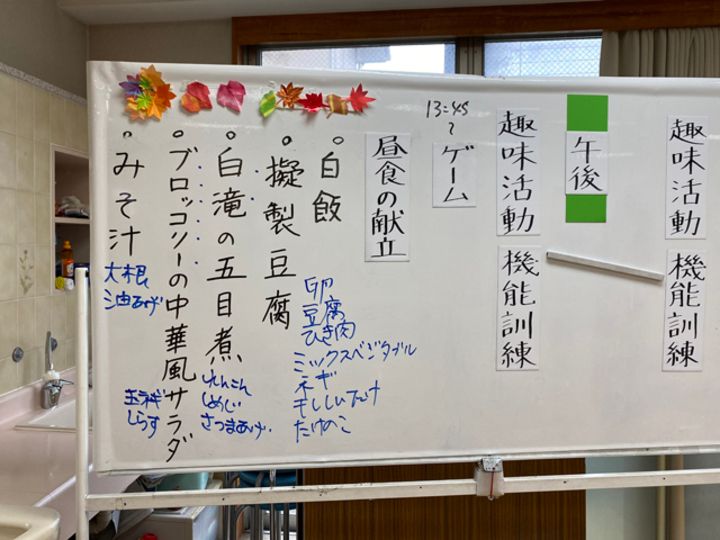 趣味活動
機能訓練
午後
趣味活動
機能訓練
13:45
〜
ゲーム
昼食の献立
。白飯
。擬製豆腐
卵
豆腐
ひき肉
ミックスベジタブル
ネギ
干ししいたけ
たけのこ
。白滝の五目煮
れんこん
しめじ
さつまあげ
。ブロッコリーの中華風サラダ
玉ネギ
しらす
。みそ汁
大根
油あげ